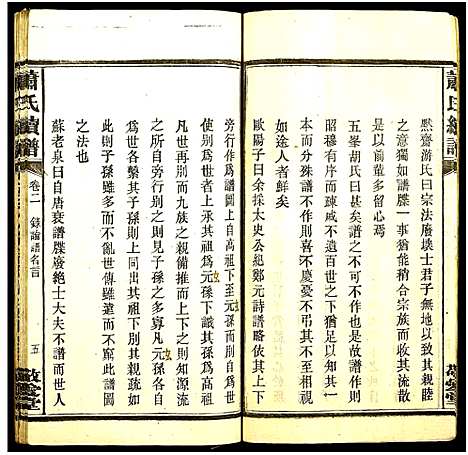 蕭氏續譜
默齋游氏曰宗法廢壞士君子無地以致其親睦
之意獨如譜牒一事猶能稍合而收其流散
是以前輩多留心焉
五峯胡氏曰甚矣譜之不可不作也是故譜作
而序昭穆有序而疎戚不遺百世之下猶足以知其一
本分殊譜不作則喜不慶憂不弔其不至相視
如途人者鮮矣
歐陽子曰譜例余採太史公紀鄭元詩譜略依其上下
旁行作為譜圖上自高祖下至元孫而別自為世
使別為世者上承其祖為元孫下系其孫為高祖
凡世再別而九族之親備推而上下之則知源流
之所自旁行別之則見子孫之多寡凡元孫別而自
為世者各繫其子孫則上同出其祖下別其親疎
此則子孫雖多而不亂世傳雖遠而不窮此譜圖
之法也
蘇老泉曰自唐衰譜牒廢絶士大夫不譜而世人
蕭氏續譜
卷二
錄論譜名言
五
敬愛堂